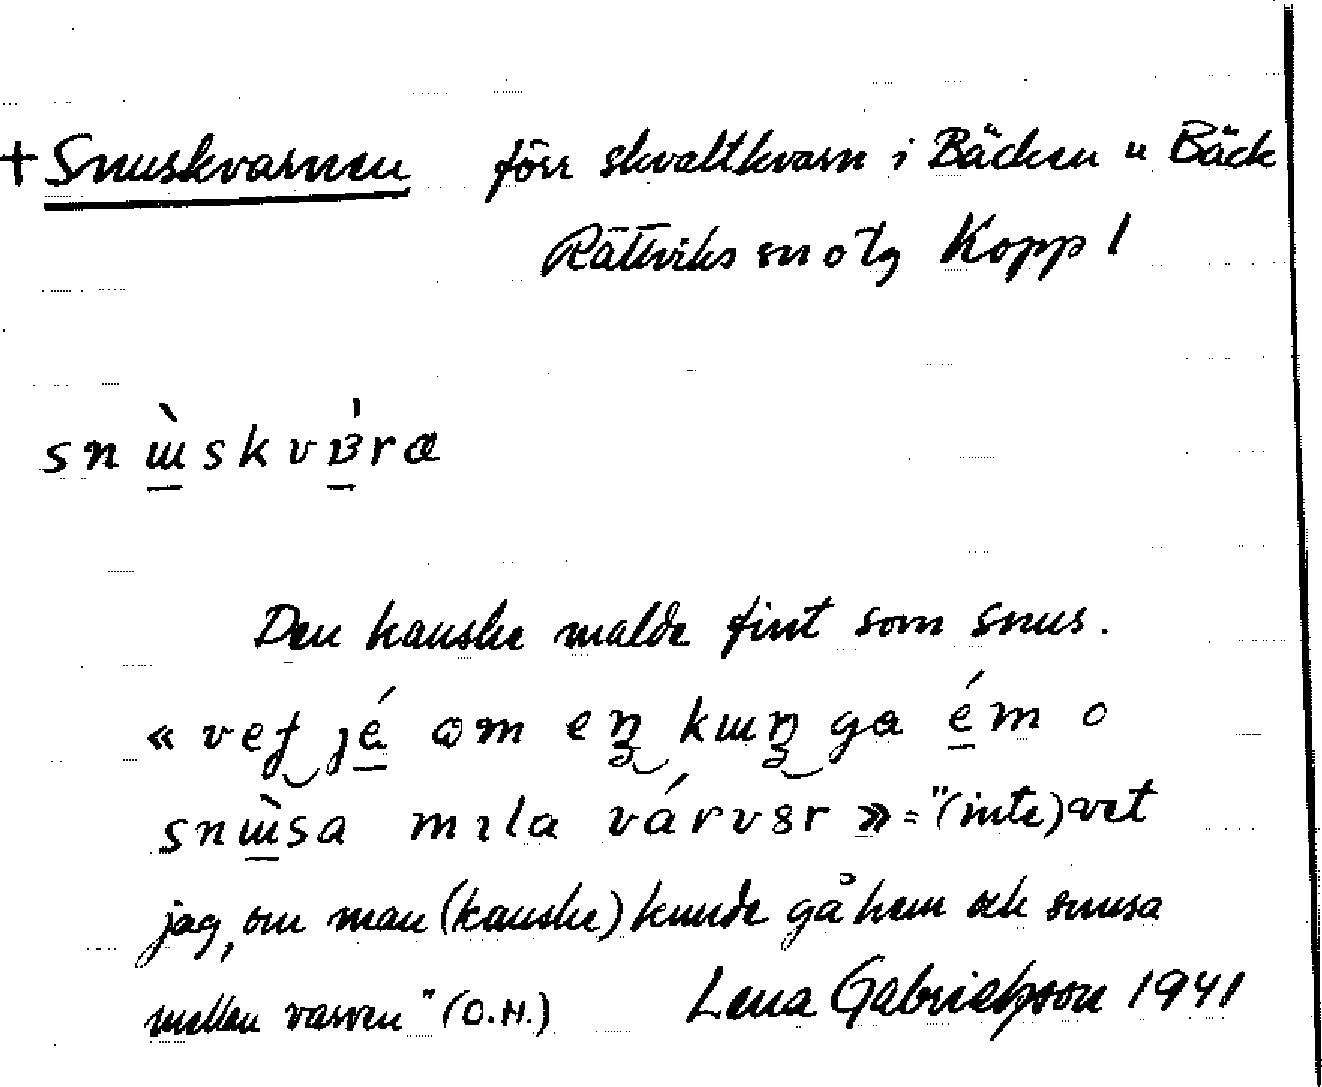 + Snuskvarnen förr skvaltkvarn i Bäcken u Bäck
Rättviks sn o tg Kopp l
snɯ̀skvɐ̍ra
Den kanske malde fint som snus.
« veʃ jé om eŋ kɯŋ ga ém o
snɯ̀sa mıla várvɜr » = "(inte) vet
jag, om man (kanske) kunde gå hem och snusa
mellan varven" (O.H.) Lena Gabrielsson 1941